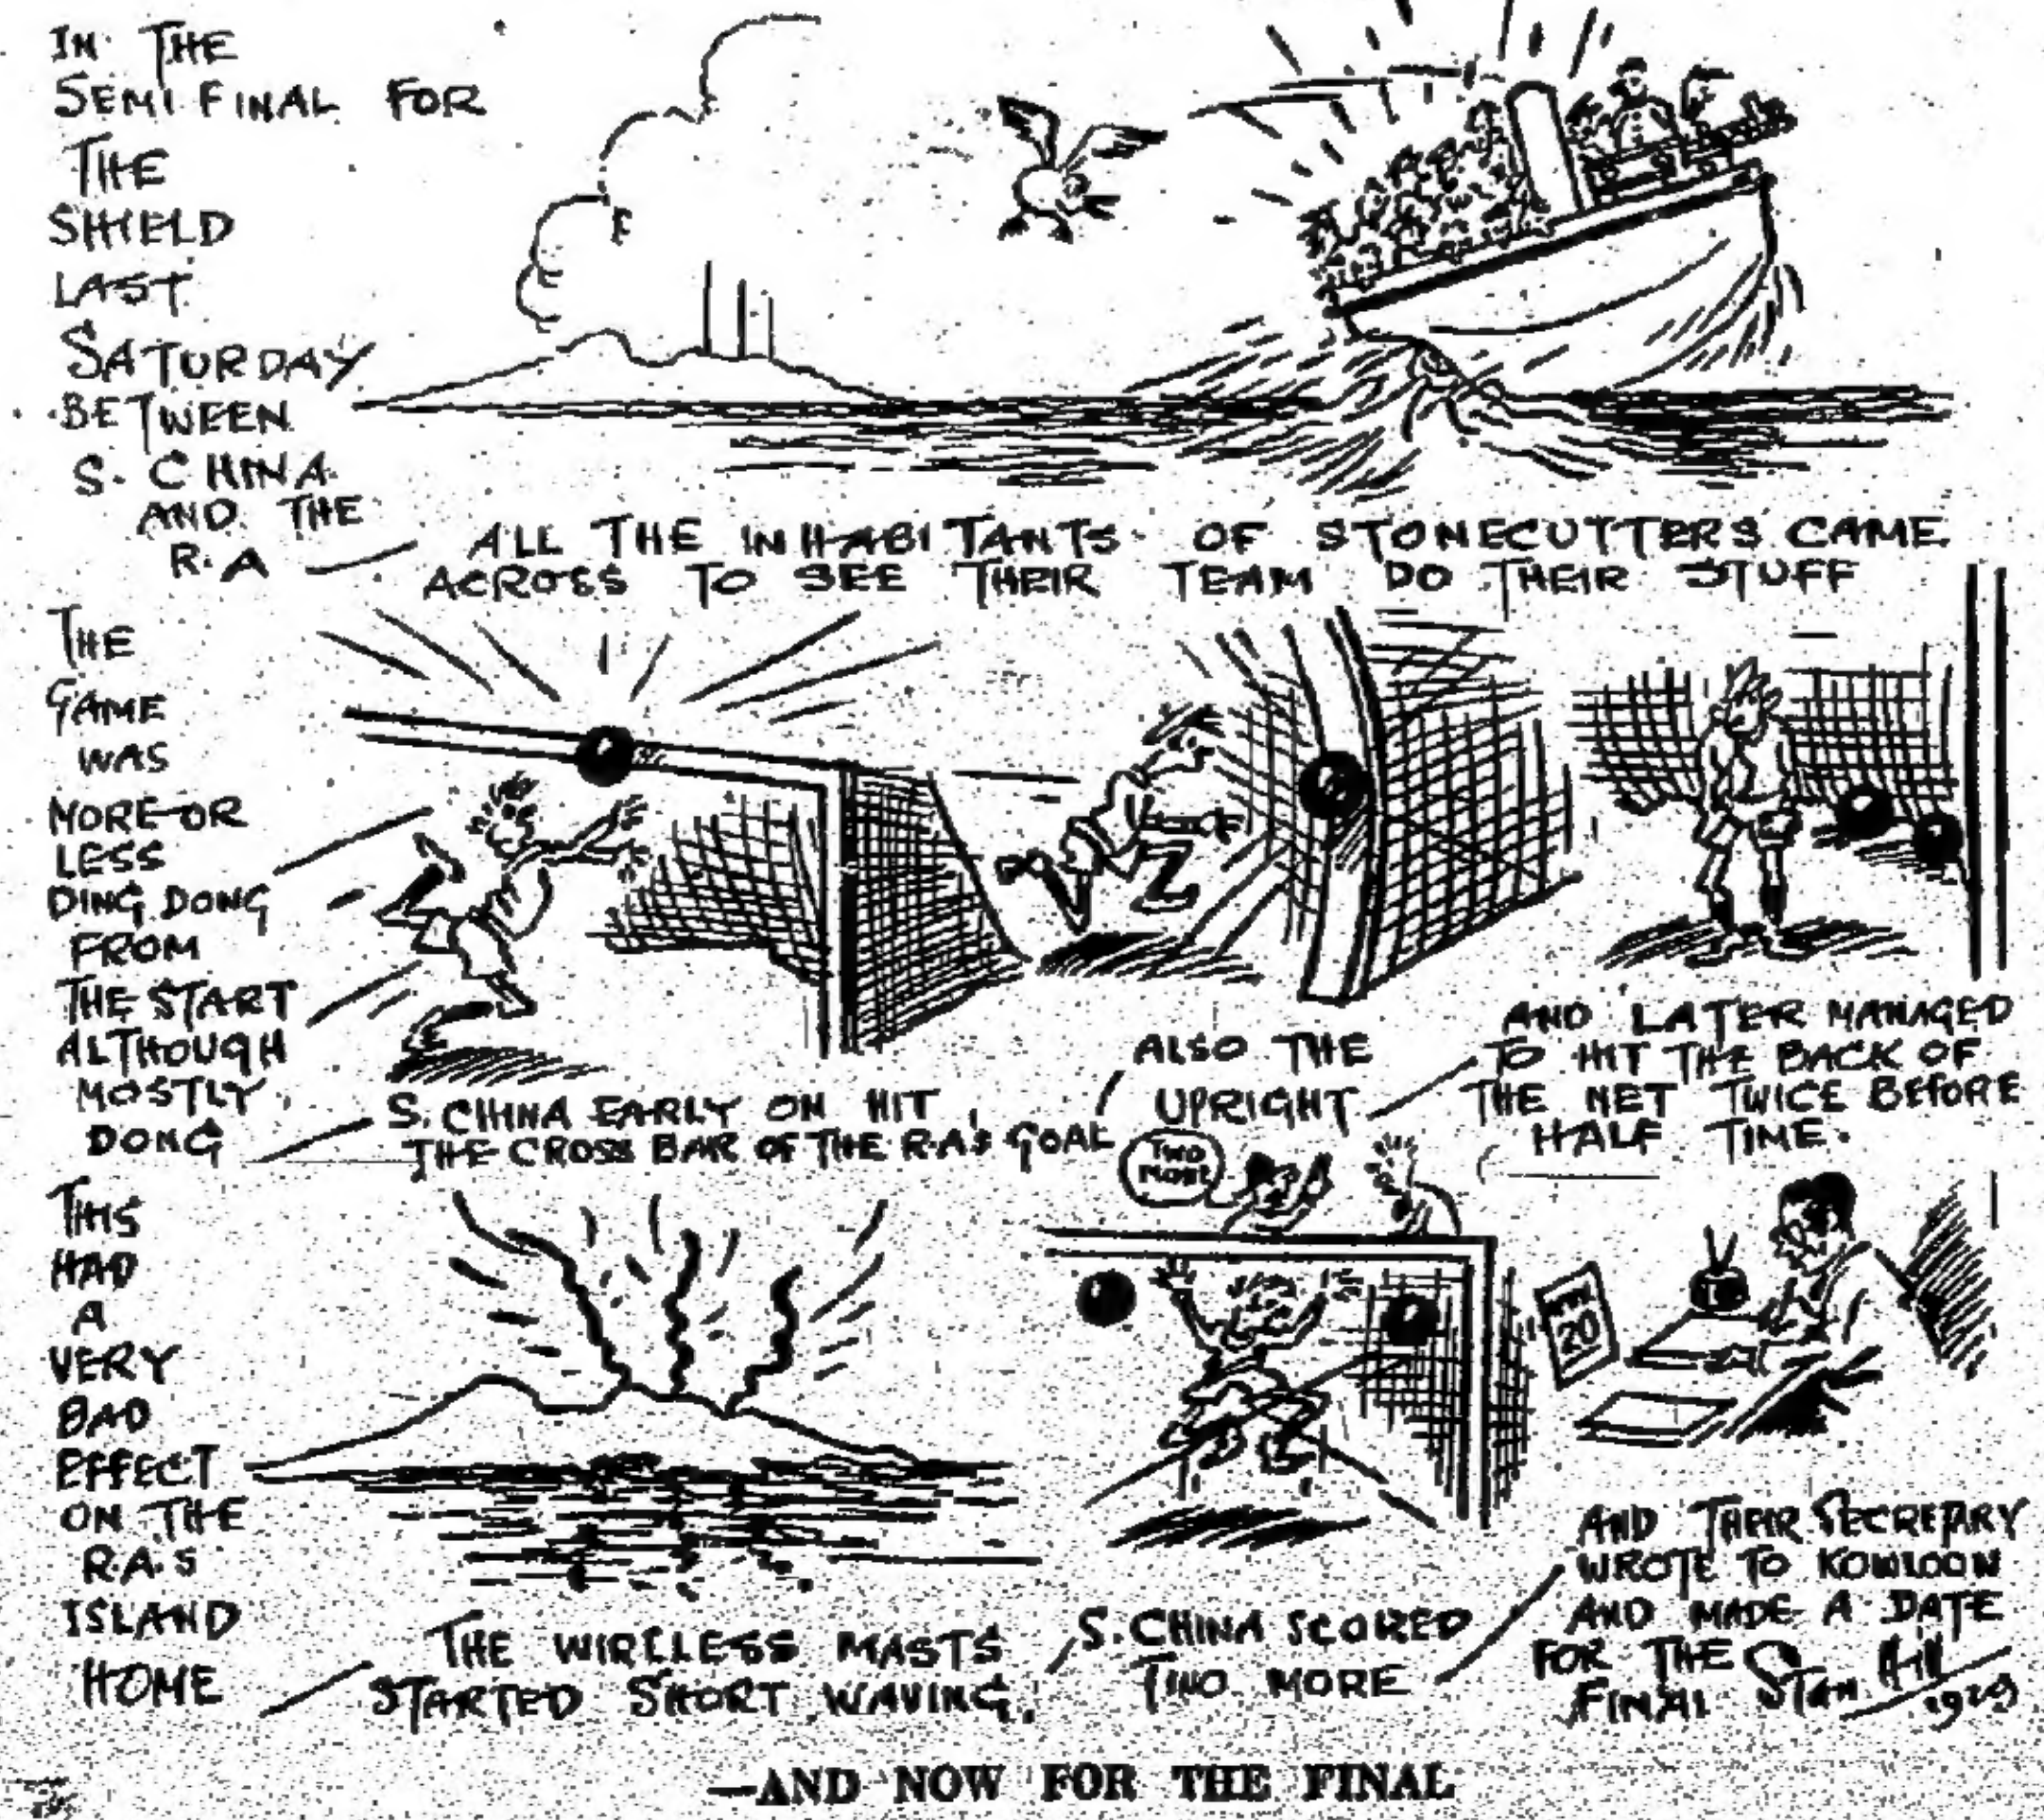 IN THE
SEMI FINAL FOR
THE
SHIELD
LAST
SATURDAY
BETWEEN
S. CHINA
AND THE
R.A —
ALL THE INHABITANTS OF STONECUTTERS CAME
ACROSS TO SEE THEIR TEAM DO THEIR STUFF
THE
GAME
WAS
MORE OR
LESS
DING DONG
FROM
THE START
ALTHOUGH
MOSTLY
DONG
S. CHINA EARLY ON HIT
THE CROSS BAR OF THE R.A'S GOAL
ALSO THE
UPRIGHT
AND LATER MANAGED
TO HIT THE BACK OF
THE NET TWICE BEFORE
HALF TIME.
THIS
HAD
A
VERY
BAD
EFFECT
ON THE
R.A.S
ISLAND
HOME
THE WIRELESS MASTS
STARTED SHORT WAVING.
TWO
MORE
S. CHINA SCORED
TWO MORE
20
AND THEIR SECRETARY
WROTE TO KOWLOON
AND MADE A DATE
FOR THE
FINAL
Stan Hill
1929
—AND NOW FOR THE FINAL